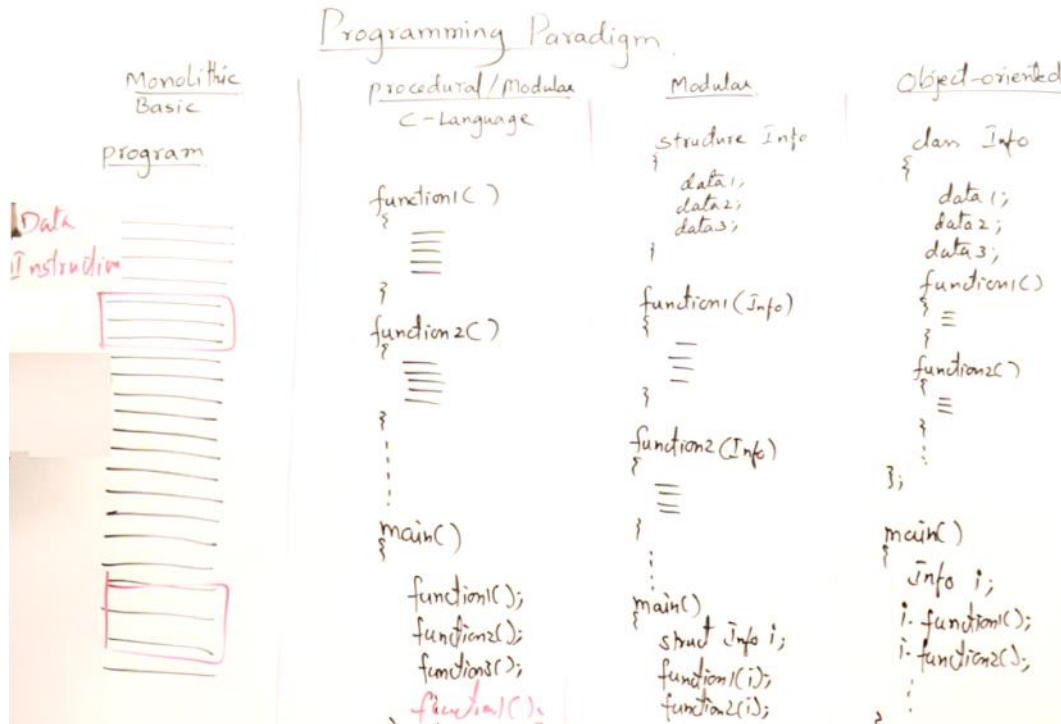 Programming Paradigm
Monolithic
Basic
program
Data
Instruction
procedural/Modular
C-Language
function1()
{
}
function2()
{
}
main()
{
function1();
function2();
function3();
function1();
}
Modular
structure Info
{
data1;
data2;
data3;
}
function1(Info)
{
}
function2(Info)
{
}
main()
{
struct Info i;
function1(i);
function2(i);
Object-oriented
class Info
{
data1;
data2;
data3;
function1()
{
}
function2()
{
}
};
main()
{
Info i;
i.function1();
i.function2();
}